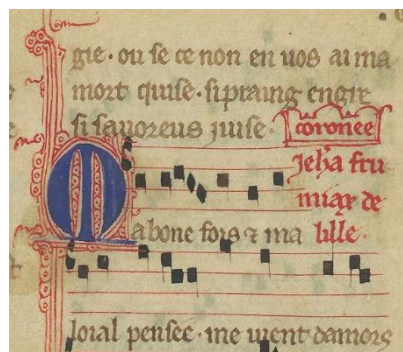 gie · ou se ce non en uos ai ma
mort quise · si praing engre
si sauoreus iuise · coronee
Jeha fru
miax de
Ma bone fois ⁊ ma lille ·
loial pensee · me uient damors